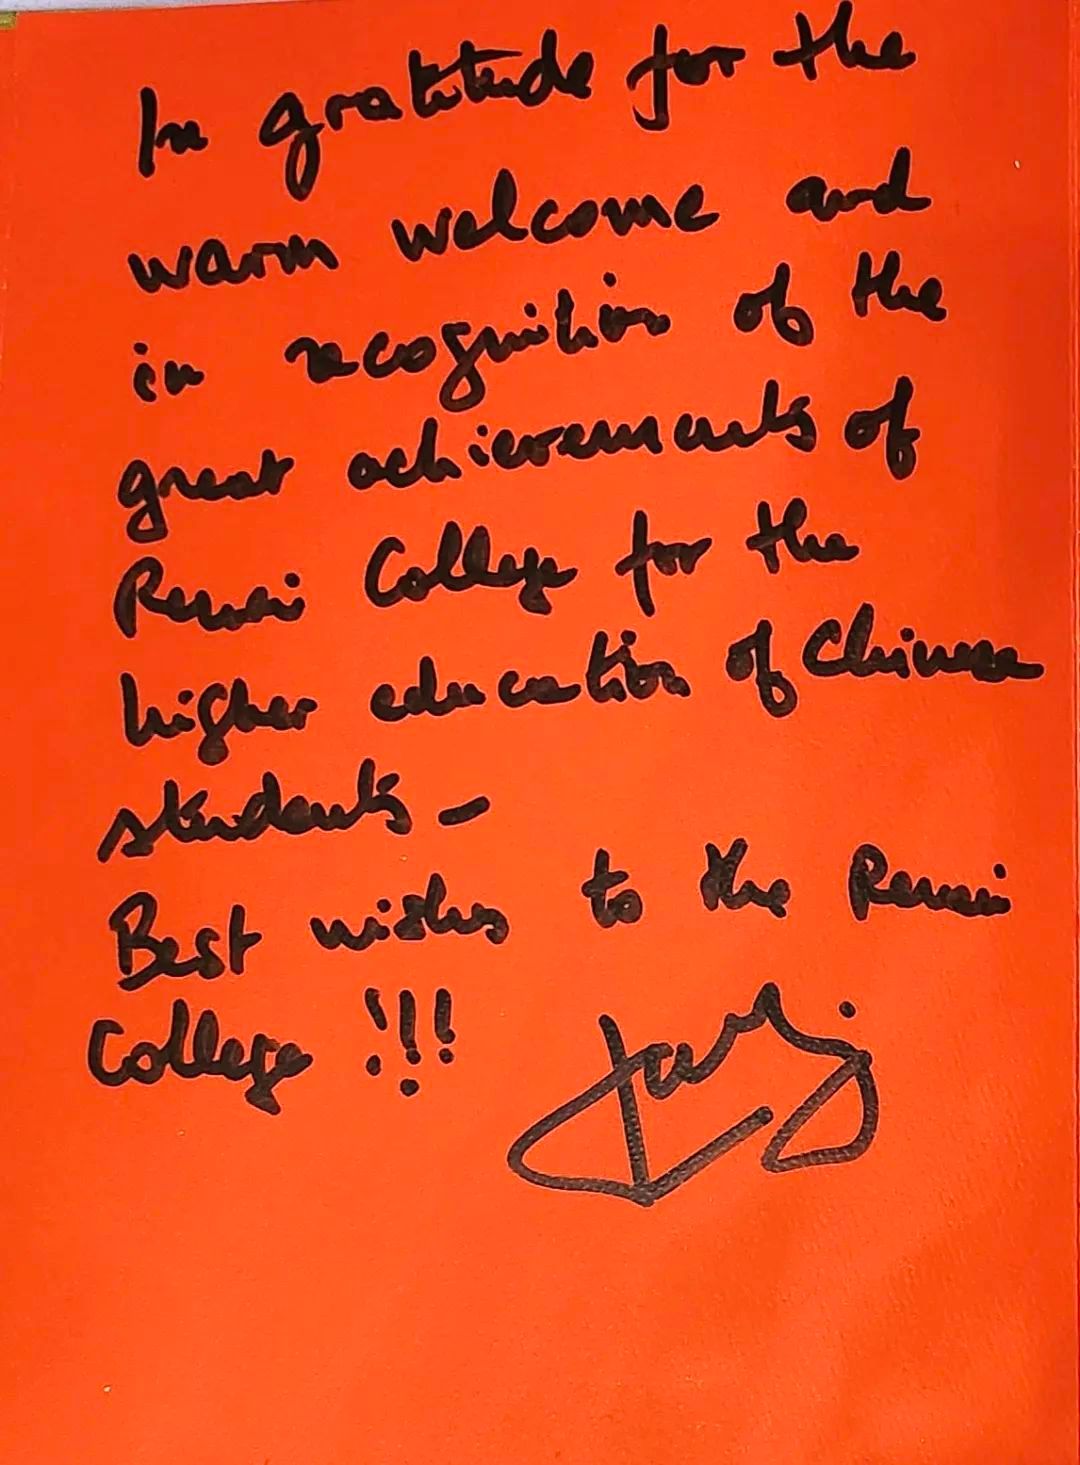 In gratitude for the
warm welcome and
in recognition of the
great achievements of
Renai College for the
higher education of Chinese
students -
Best wishes to the Renai
College !!!